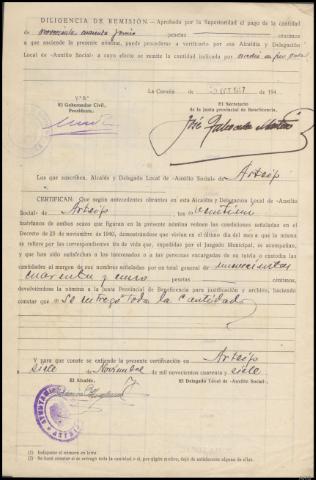 DILIGENCIA DE REMISIÓN.—Aprobado por la Superioridad el pago de la cantidad
de novecientas cuarenta y cinco pesetas céntimos
a que asciende la presente nómina, puede procederse a verificarlo por esa Alcaldía y Delegación
Local de «Auxilio Social» a cuyo efecto se remite la cantidad indicada por
La Coruña, OCT 1947 de 194
V.º B.º
El Gobernador Civil,
Presidente,
El Secretario
de la junta provincial de Beneficencia,
José
Los que suscriben, Alcalde y Delegado Local de «Auxilio Social» de Arteijo
CERTIFICAN: Que según antecedentes obrantes en esta Alcaldía y Delegación Local de «Auxilio
Social» de Arteijo los
huérfanos de ambos sexos que figuran en la presente nómina reúnen las condiciones señaladas en el
Decreto de 23 de noviembre de 1940, demostrándose que vivían en el último día del mes a que la misma
se refiere por las correspondientes fes de vida que, expedidas por el Juzgado Municipal, se acompañan,
y que han sido satisfechas a los interesados o a las personas encargadas de su tutela o custodia las
cantidades al margen de sus nombres señaladas por un total general de novecientas
cuarenta y cinco céntimos,
devolviéndose la nómina a la Junta Provincial de Beneficencia para justificación y archivo, haciendo
constar que se entregó toda la cantidad
Y para que conste se extiende la presente certificación en Arteijo
a siete de Noviembre de mil novecientos cuarenta y siete
El Alcalde,
El Delegado Local de «Auxilio Social»,
AYUNTAMIENTO
(1) Indíquese el número en letra.
(2) Se hará constar si se entregó toda la cantidad o si, por algún motivo, dejó de satisfacerse alguna de ellas.